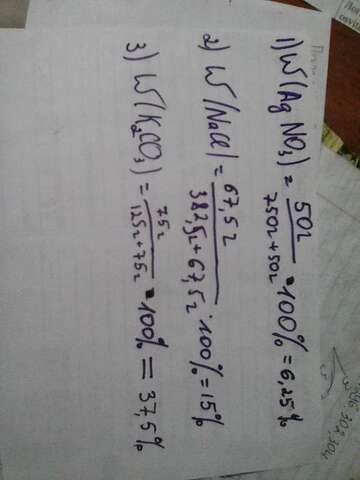 1) W(AgNO₃) = 50г / 750г + 50г · 100% = 6,25%
2) W(NaCl) = 67,5г / 382,5г + 67,5г · 100% = 15%
3) W(K₂CO₃) = 75г / 125г + 75г · 100% = 37,5%